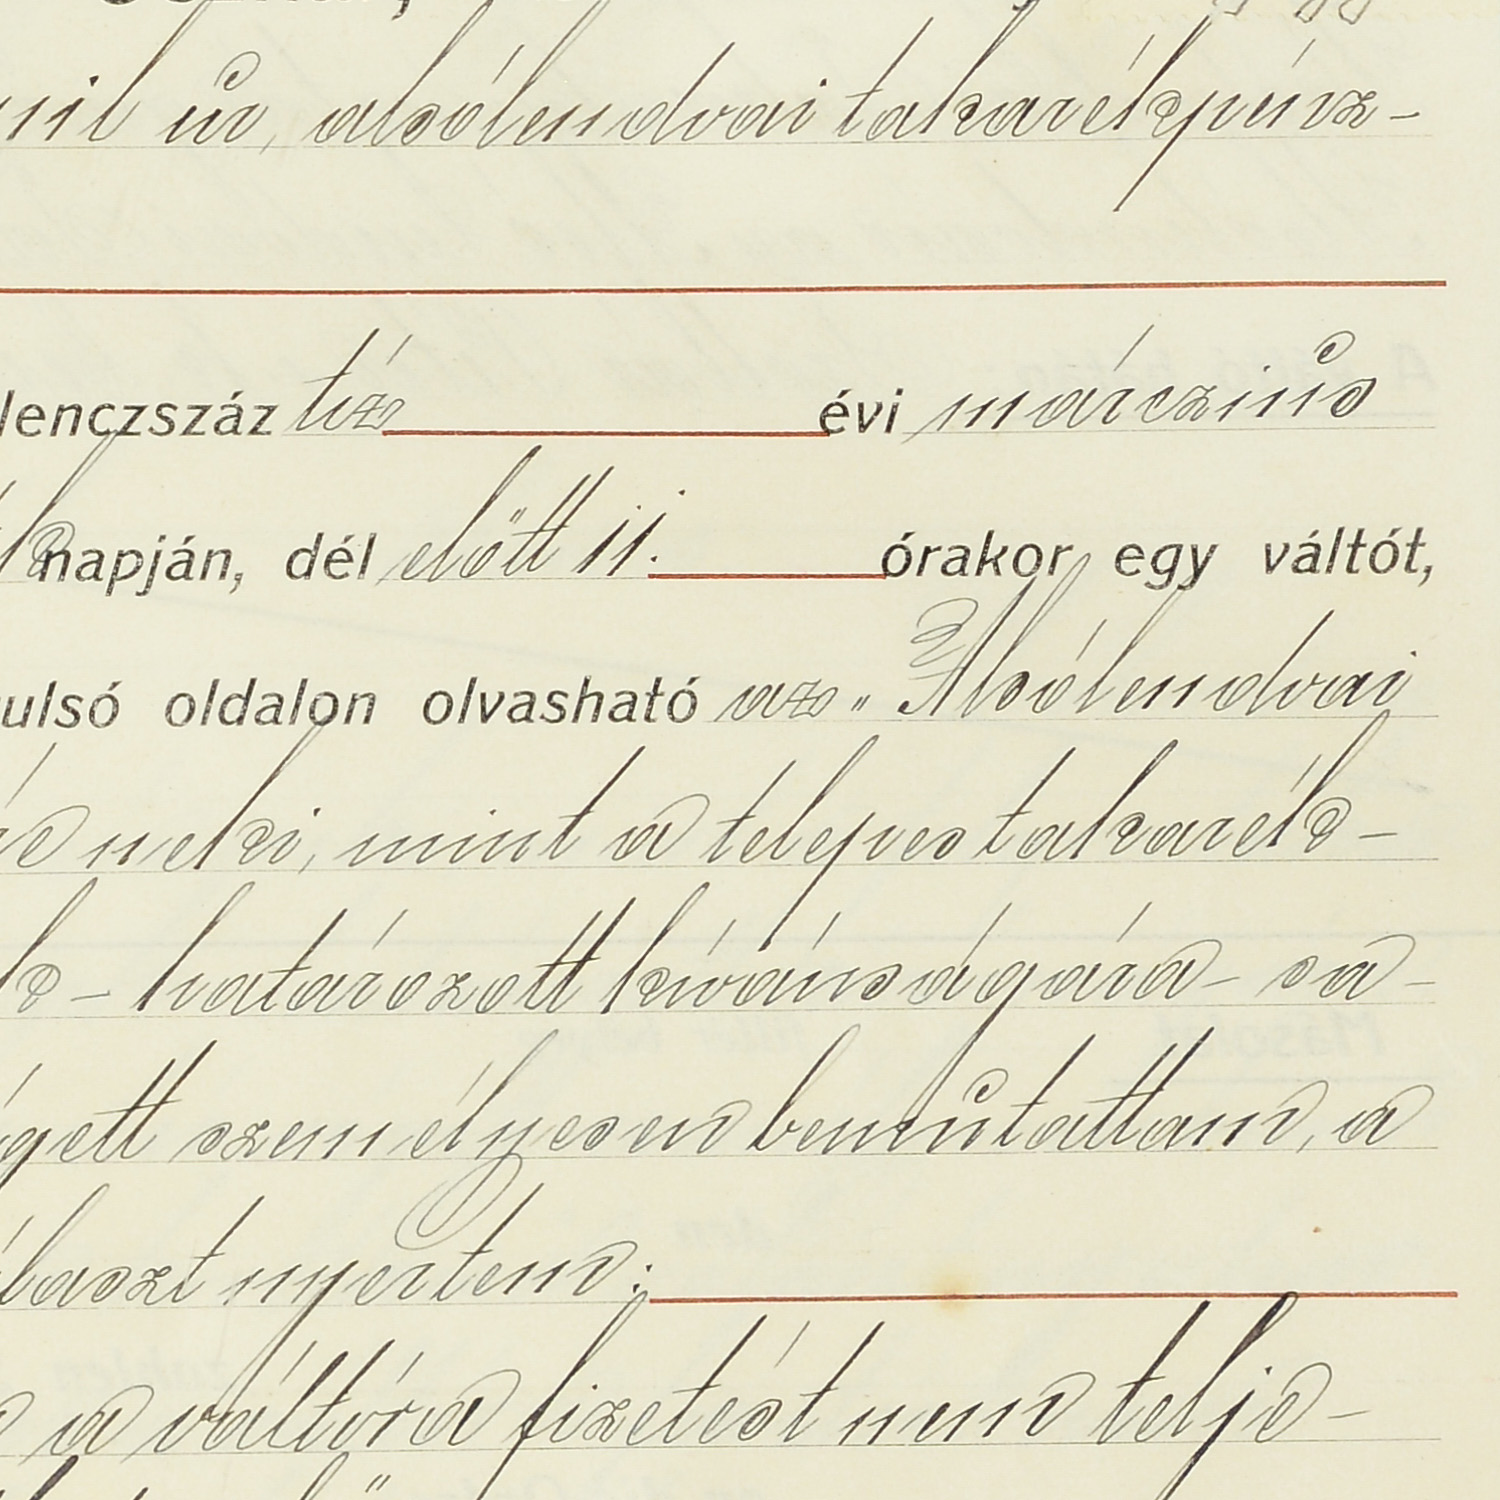 úr, alsólendvai takarékpénz-
lenczszáz tíz évi márczius
napján, dél előtt 11. órakor egy váltót,
ulsó oldalon olvasható az „Alsólendvai
neki, mint a telepes takarék-
- határozott kívánságára - sa-
gett személyesen bemutattam, a
laszt nyertem:
a váltóra fizetést nem telje-